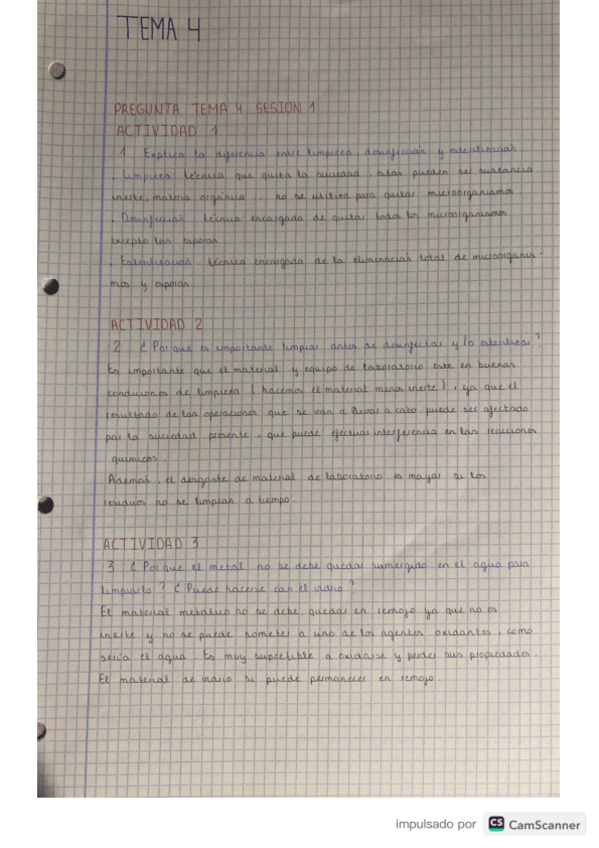 TEMA 4
PREGUNTA TEMA 4 SESION 1
ACTIVIDAD 1
1 Explica la diferencia entre limpieza, desinfección y esterilización
. Limpieza técnica que quita la suciedad, estas pueden ser sustancia
inerte, materia orgánica... no se utiliza para quitar microorganismos
. Desinfección técnica encargada de quitar todos los microorganismos
excepto las esporas
. Esterilización técnica encargada de la eliminación total de microorganis-
mos y esporas
ACTIVIDAD 2
2 ¿Por que es importante limpiar antes de desinfectar y/o esterilizar?
Es importante que el material y equipo de laboratorio este en buenas
condiciones de limpieza (hacemos el material menos inerte), ya que el
resultado de las operaciones que se van a llevar a cabo puede ser afectado
por la suciedad presente, que puede efectuar interferencia en las reacciones
químicas.
Ademas, el desgaste de material de laboratorio es mayor si los
residuos no se limpian a tiempo.
ACTIVIDAD 3
3 ¿Por que el metal no se debe quedar sumergido en el agua para
limpiarlo? ¿Puede hacerse con el vidrio?
El material metalico no se debe quedar en remojo ya que no es
inerte y no se puede someter a uno de los agentes oxidantes, como
sería el agua. Es muy suceptible a oxidarse y perder sus propiedades
El material de vidrio si puede permanecer en remojo.
impulsado por CS CamScanner